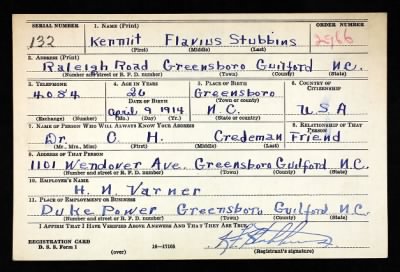 SERIAL NUMBER 1. NAME (Print) ORDER NUMBER
132 Kermit Flavius Stubbins 2966
(First) (Middle) (Last)
2. ADDRESS (Print)
Raleigh Road Greensboro Guilford N.C.
(Number and street or R. F. D. number) (Town) (County) (State)
3. TELEPHONE 4. AGE IN YEARS 5. PLACE OF BIRTH 6. COUNTRY OF CITIZENSHIP
4084 26 Greensboro
DATE OF BIRTH (Town or county)
April 9 1914 N.C. U S A
(Exchange) (Number) (Mo.) (Day) (Yr.) (State or country)
7. NAME OF PERSON WHO WILL ALWAYS KNOW YOUR ADDRESS 8. RELATIONSHIP OF THAT PERSON
Dr C. H. Credeman Friend
(Mr., Mrs., Miss) (First) (Middle) (Last)
9. ADDRESS OF THAT PERSON
1101 Wendover Ave. Greensboro Guilford N.C.
(Number and street or R. F. D. number) (Town) (County) (State)
10. EMPLOYER'S NAME
H. N. Varner
11. PLACE OF EMPLOYMENT OR BUSINESS
Duke Power Greensboro Guilford N.C.
(Number and street or R. F. D. number) (Town) (County) (State)
I AFFIRM THAT I HAVE VERIFIED ABOVE ANSWERS AND THAT THEY ARE TRUE.
REGISTRATION CARD
D. S. S. Form 1 (over) 16-17105 (Registrant's signature)